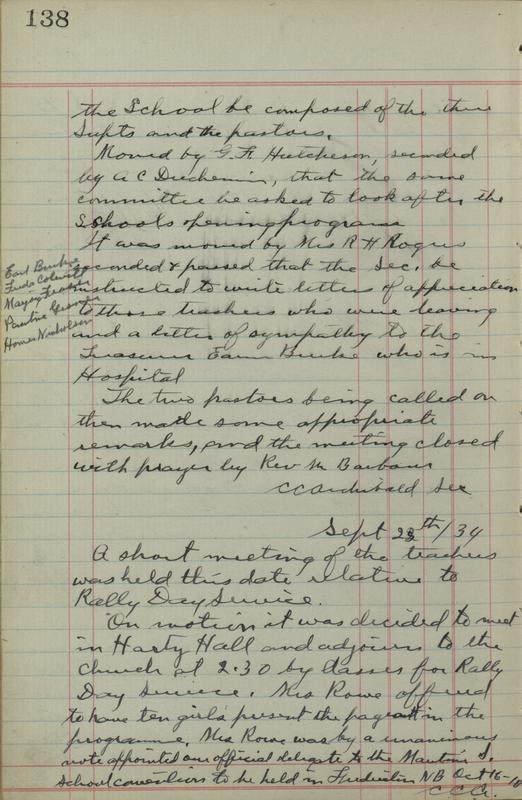 138
the School be composed of the three
Supts and the pastors.
Moved by G. R Hutcheson, seconded
by A C Duchemin, that the same
committee be asked to look after the
Schools opening program
It was moved by Mrs R H Rogers
seconded & passed that the Sec. be
instructed to write letters of appreciation
to those teachers who were leaving
and a letter of sympathy to the
Treasurer Earl Burke who is in
Hospital
Earl Burke
Freda
Maysy Fraser
Pauline George
Homer Nicholson
The two pastors being called on
then made some appropriate
remarks, and the meeting closed
with prayer by Rev Mr Barbour
C C Archibald Sec
Sept 23th/34
A short meeting of the teachers
was held this date relative to
Rally Day Service.
On motion it was decided to meet
in Harty Hall and adjourn to the
Church at 2.30 by classes for Rally
Day Service. Mrs Rowe offered
to have ten girls present the pageant in the
programme. Mrs Rowe was by a unanimous
vote appointed our official delegate to the Maritime S.
School convention to be held in Fredericton NB Oct 16-18
C.C.A.